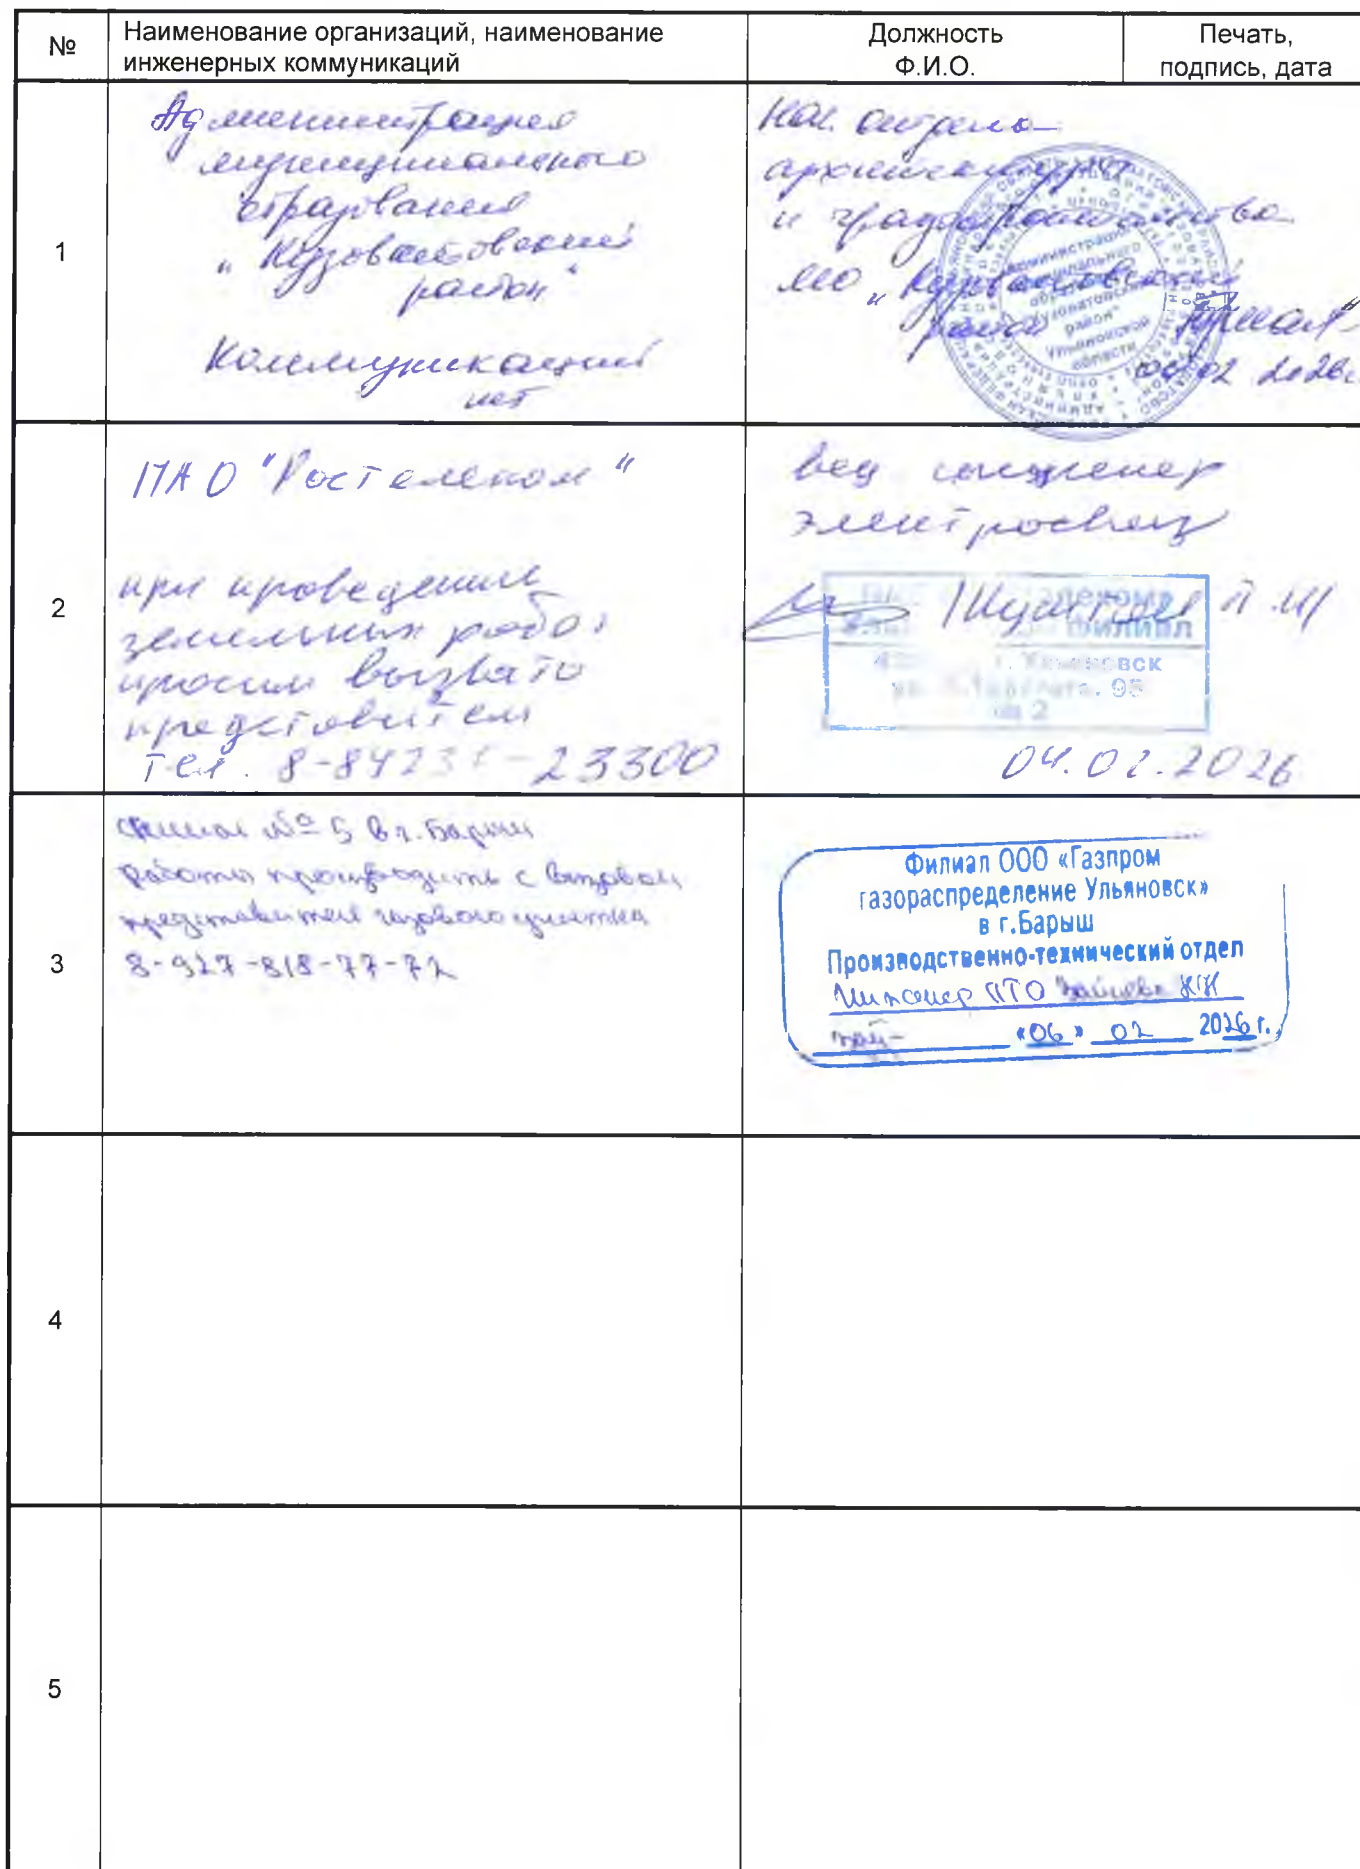 №
Наименование организаций, наименование
инженерных коммуникаций
Должность
Ф.И.О.
Печать,
подпись, дата
1
Администрация
муниципального
образования
"Кузоватовский
район"
Коммуникаций
нет
Нач. отдела
архитектуры
и градостроительства
МО "Кузоватовский
район"
02 2026г.
Администрация
муниципального
образования
"Кузоватовский
район"
Ульяновской
области
2
ПАО "Ростелеком"
при проведении
земельных работ
просим вызвать
представителя
тел. 8-84231-23300
вед инженер
электросвязи
филиал
04.02.2026
3
Филиал № 5 в г. Барыш
работы производить с вызовом
представителя газового участка
8-927-818-77-72
Филиал ООО «Газпром
газораспределение Ульяновск»
в г.Барыш
Производственно-технический отдел
Инженер ПТО Зайцева
«06» 02 2026 г.
4
5